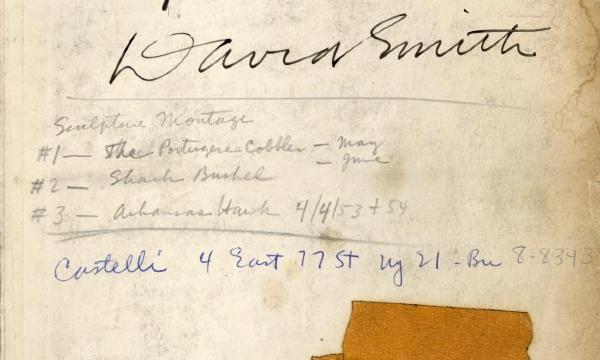 David Smith
Sculpture Montage
#1 — The Portugese Cobbler — May
— June
#2 — Shack Bushel
#3 — Arkansas Hawk 4/4/53 + 54
Castelli 4 East 77 St Ny 21 - Bu 8-8343